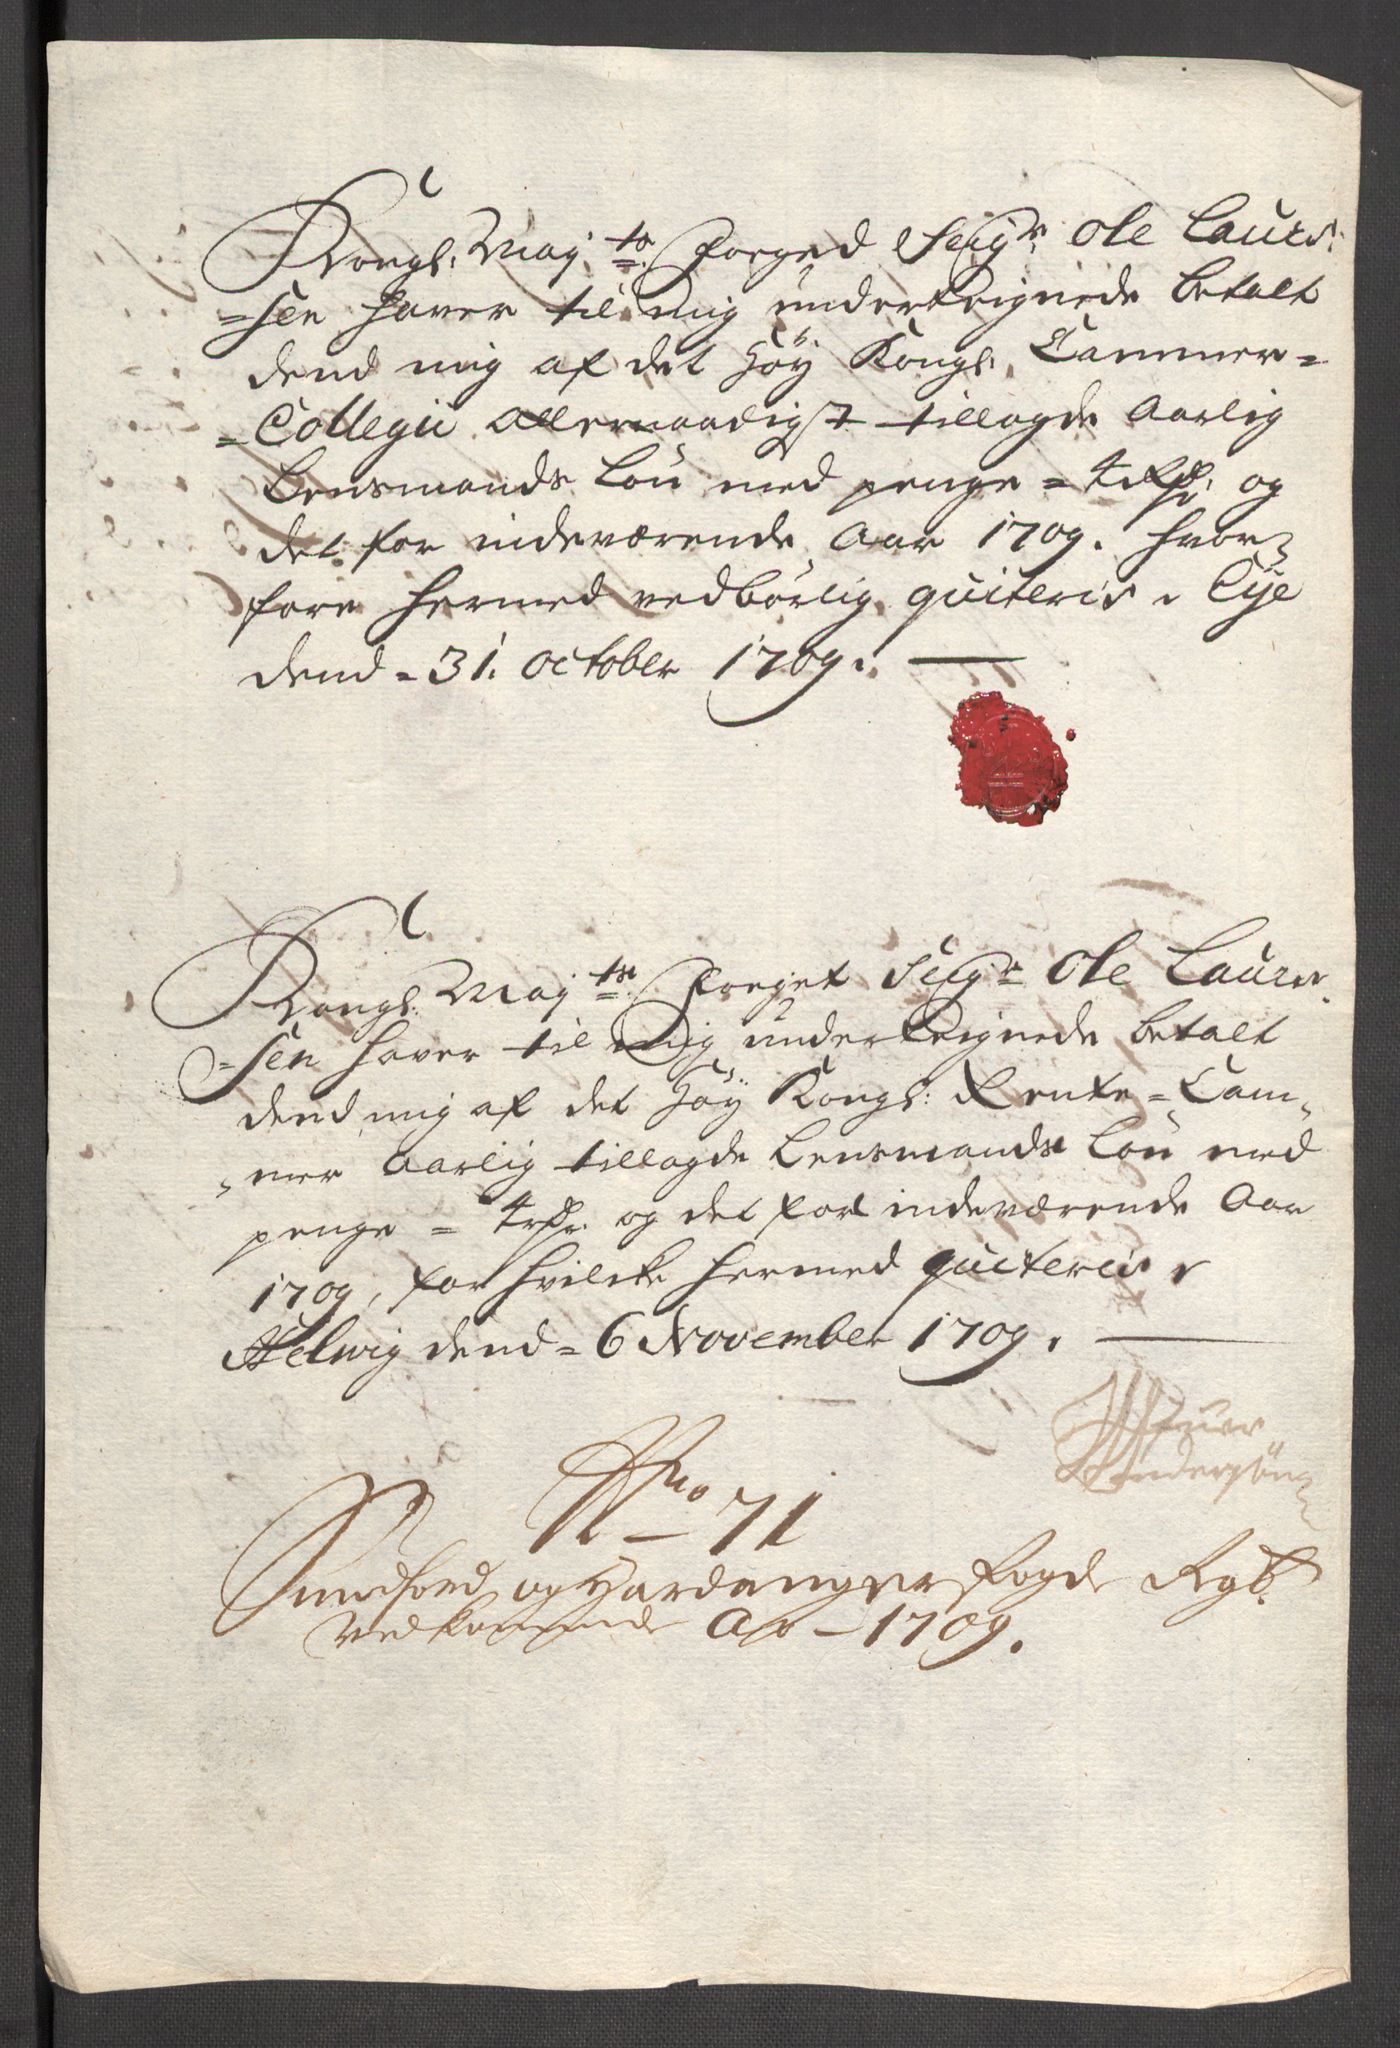 Kongl: May:ts Foeged Seig:r Ole Laurs:
=sen haver til mig underteignede betalt
dend mig af det höy Kongl: Cammer=
=Collegii allernaadigst tillagde Aarlig
Lensmands Lön med penge = 4 rdr: og
det for indeværende Aar 1709. hvor=
fore hermed vedbörlig quiteris, Eye
dend = 31. October 1709.
Kongl: May:ts Foeget Seig:r Ole Laurs
=sen haver til mig underteignede betalt
dend mig af det höy Kongl: Rente=Cam=
=mer Aarlig tillagde Lensmands Lön med
penge = 4 rdr. og det for indeværende Aar
1709, for hvilcke hermed quiteris
Helwig dend = 6 November 1709.
Andersön
No 71
Sundhord og Hardanger fogd Rgb:
Vedkommende Ao 1709.